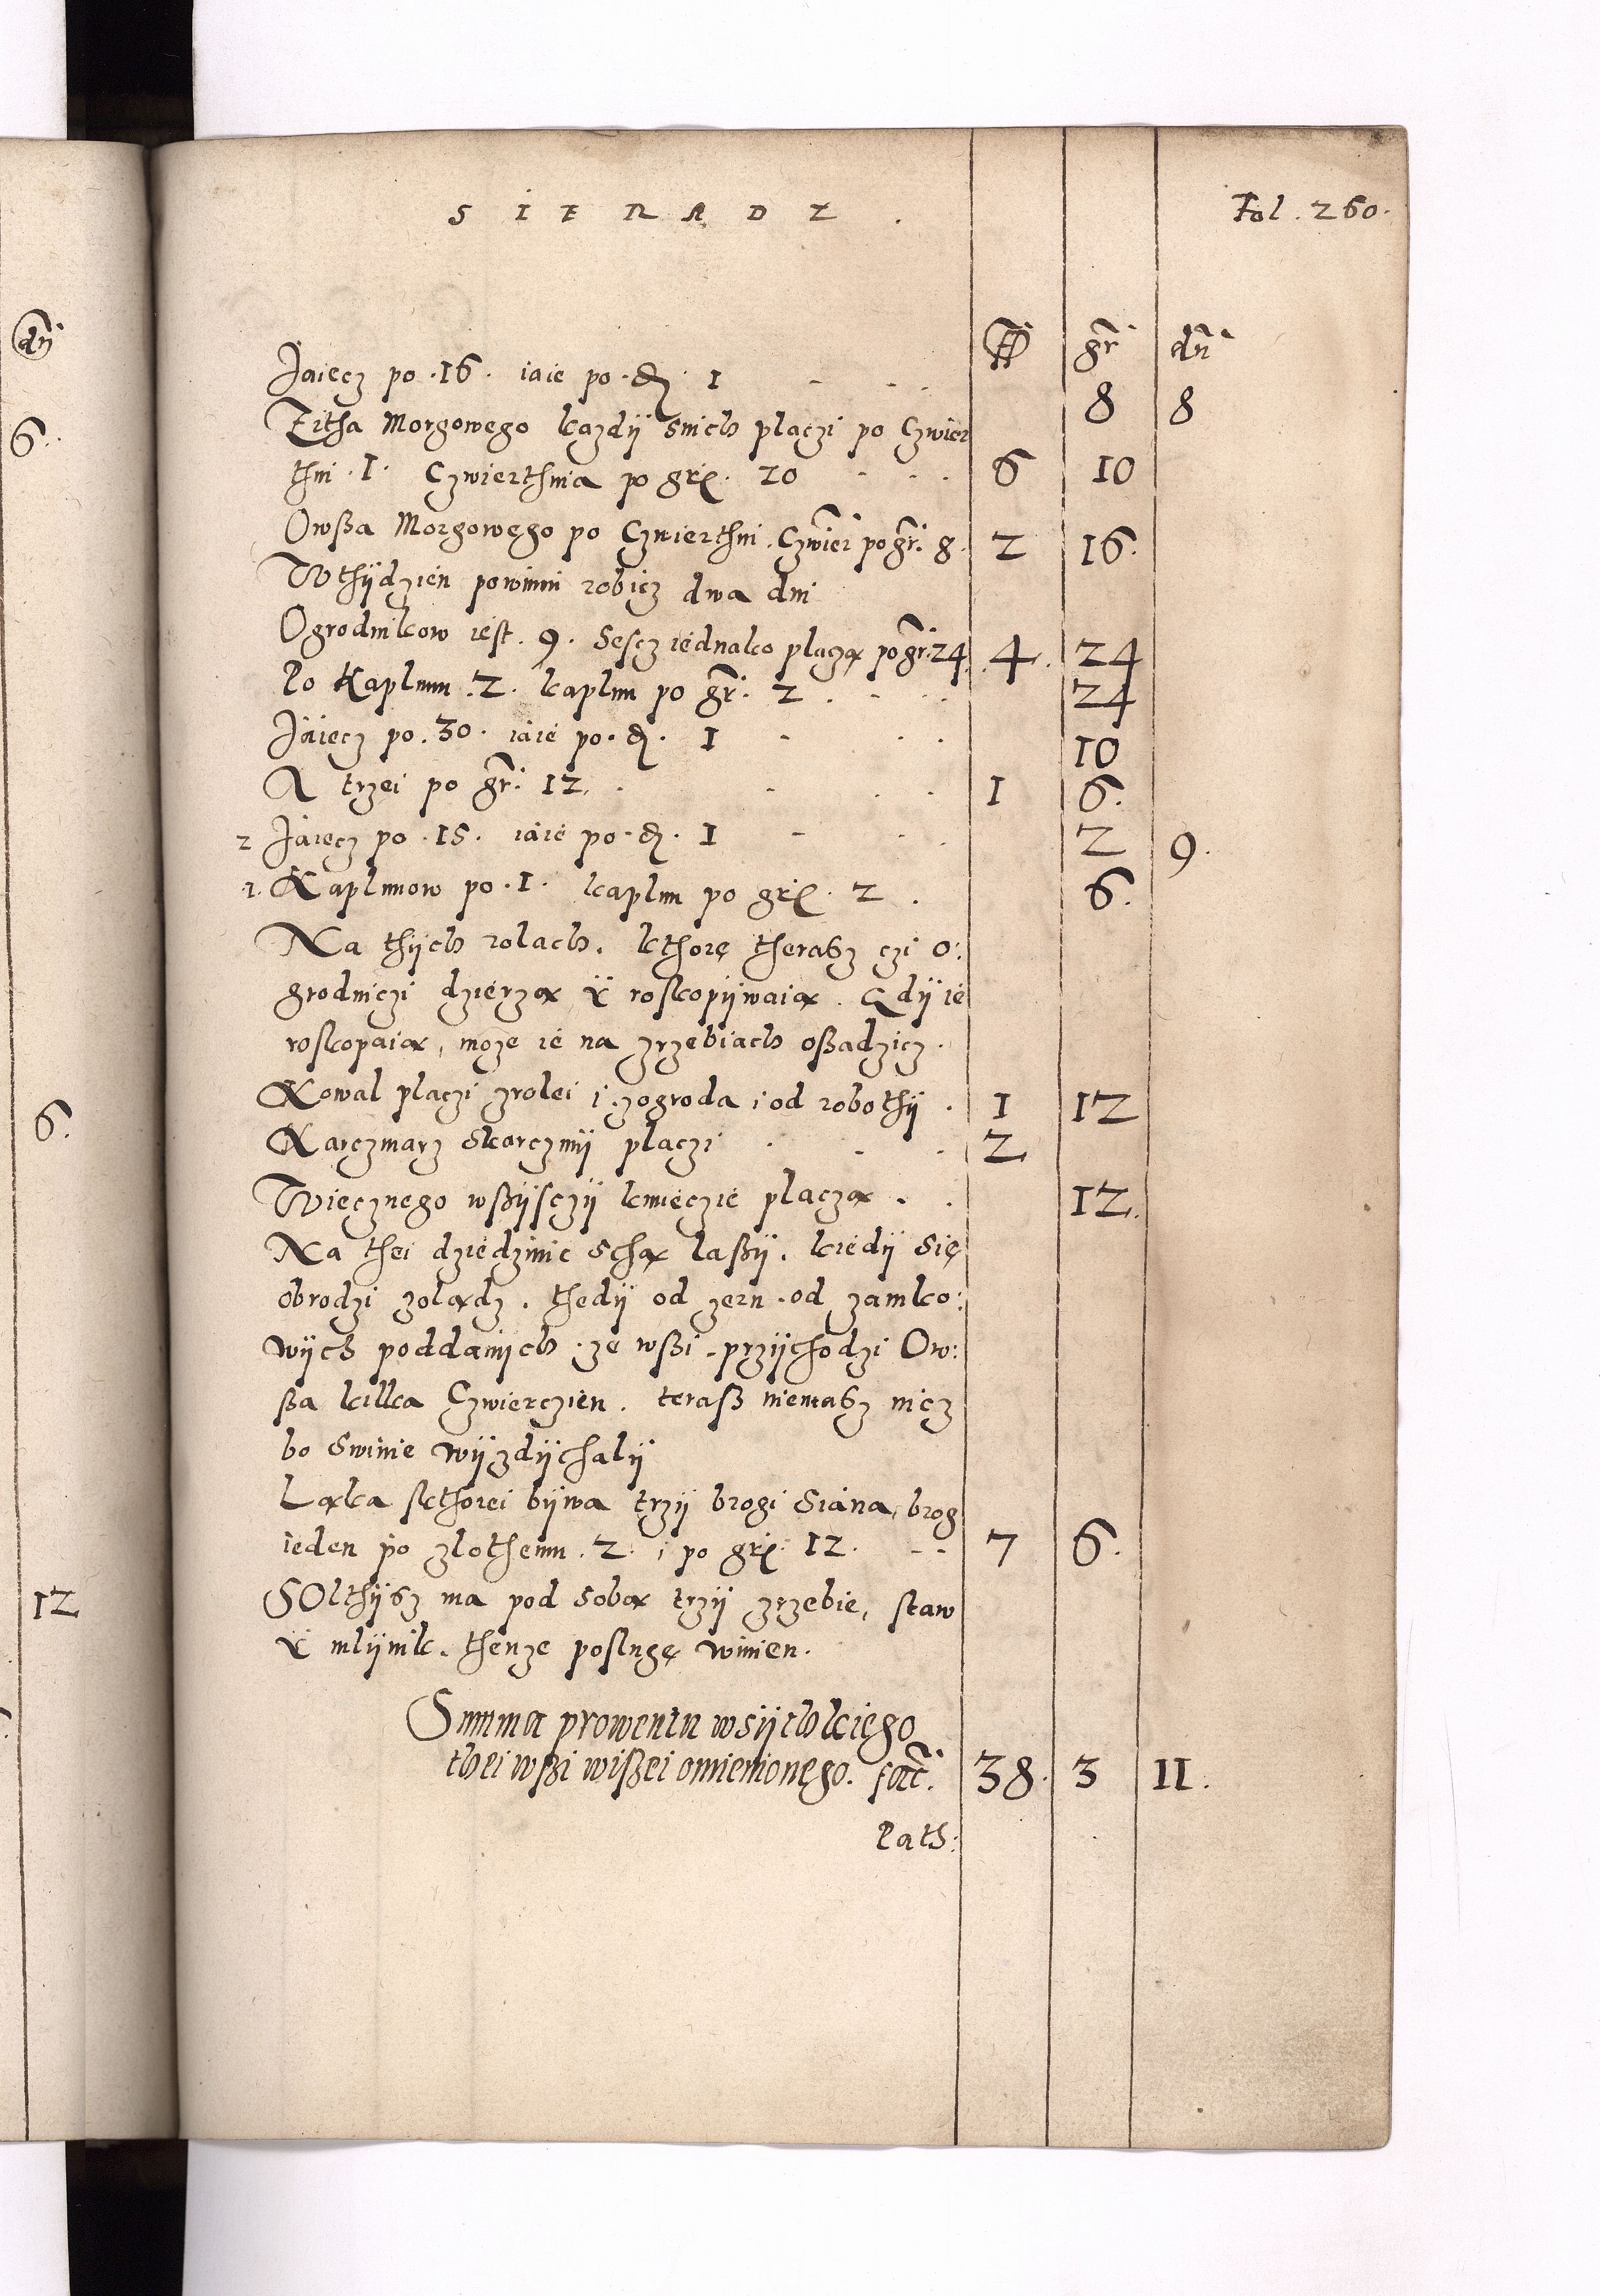 SIERADZ. Fol. 260.
fl gr̄ dn̄
Jaiecz po .16. iaie po .d. 1 8 8
Zitha Morgowego kazdÿ snich placzi po Czwier
thni .1. Czwierthnia po gr. 20 6 10
Owßa Morgowego po Czwierthni. Czwier po gr. 8. 2 16.
W thÿdzien powinni robicz dwa dni
Ogrodnikow iest .9. Sescz iednako placzą po gr. 24. 4. 24
Po Kaplunu .2. kaplun po gr. 2. 24
Jaiecz po .30. iaie po .d. 1 10
A trzei po gr. 12. 1 6.
2 Jaiecz po .15. iaie po .d. 1 2 9.
1. Kaplunow po .1. kaplun po gr. 2. 6.
Na thÿch rolach. kthorę theraßz czi o:
grodniczi dzierzą Y roskopÿwaią. Gdÿ ie
roskopaią, moze ie na zrzebiach oßadzicz.
Kowal placzi zrolei i zogroda i od robothÿ. 1 12
Karczmarz skarczmÿ placzi 2
Wiecznego wßÿsczÿ kmieczie placzą. 12.
Na thei dziedzinie schą laßÿ. kiedÿ się
obrodzi zolądz. thedÿ od zern. od zamko:
wÿch poddanich. ze wßi. przÿchodzi Ow:
ßa kilka Czwierczien. teraß niemaßz nicz
bo swinie wÿzdÿchalÿ
Ląka skthorei bÿwa trzÿ brogi siana, brog
ieden po zlothemu .2. i po gr. 12. 7 6.
SOlthÿßz ma pod sobą trzÿ zrzebie, staw
Y mlÿnik. thenze poslugę winien.
Summa prowentu wsÿchkiego
thei wßi wißei omienionego. facit. 38. 3 11.
Path:
dn̄
6.
6.
12